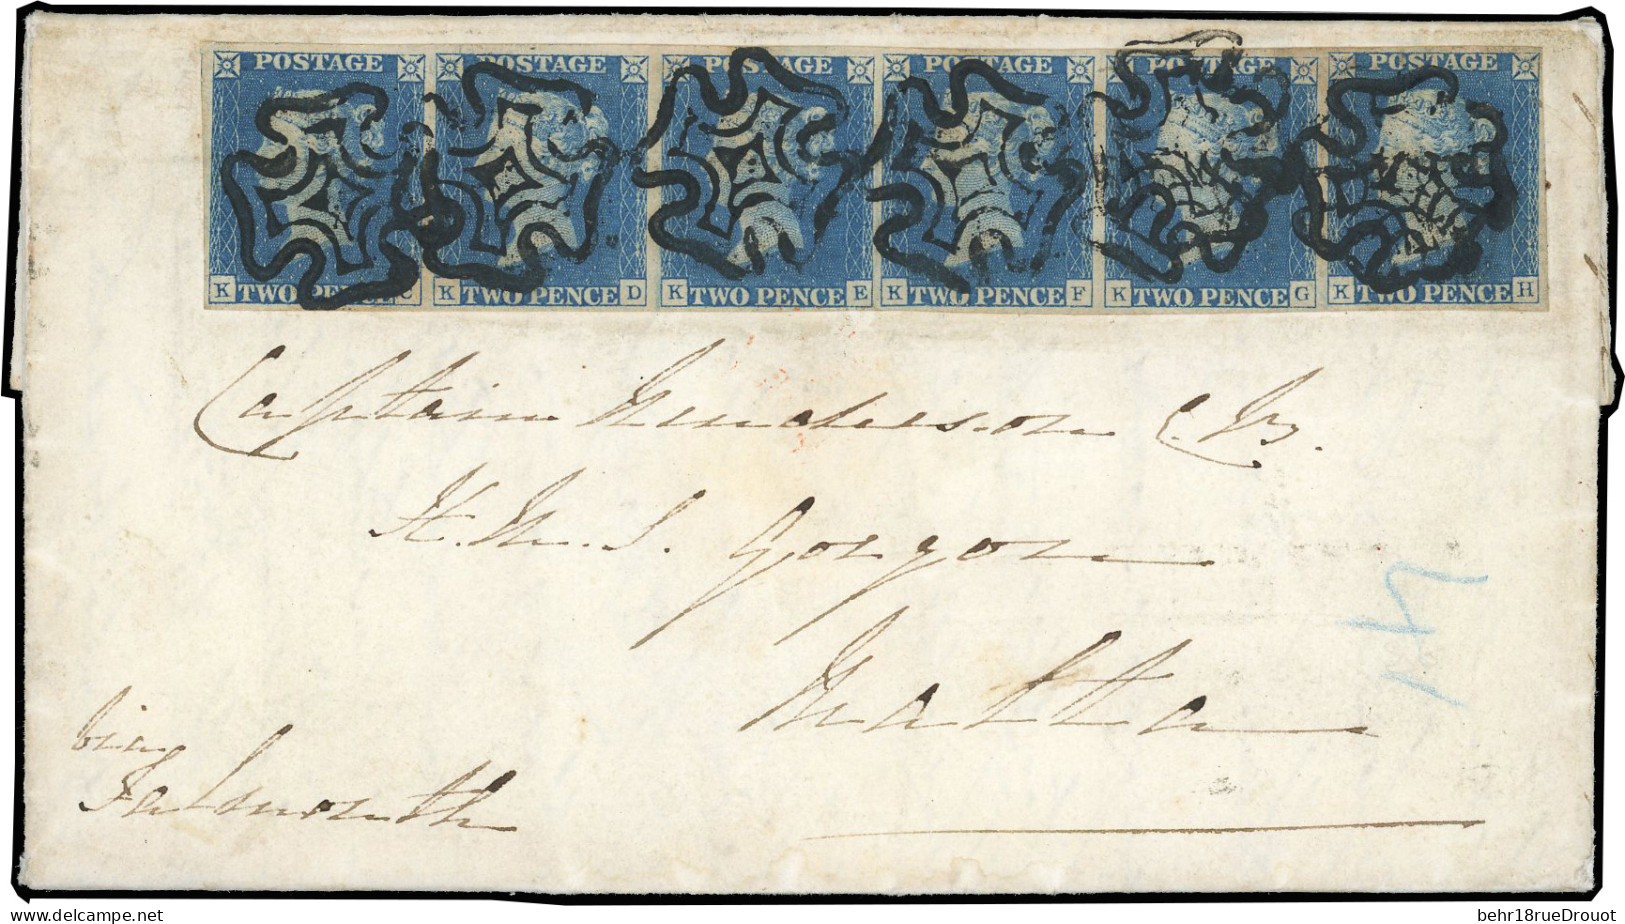 POSTAGE POSTAGE POSTAGE POSTAGE POSTAGE POSTAGE
K TWO PENCE C K TWO PENCE D K TWO PENCE E K TWO PENCE F K TWO PENCE G K TWO PENCE H
Captain Henderson C.B.
H.M.S. Gorgon
Malta
Falmouth
behr18rueDrouot